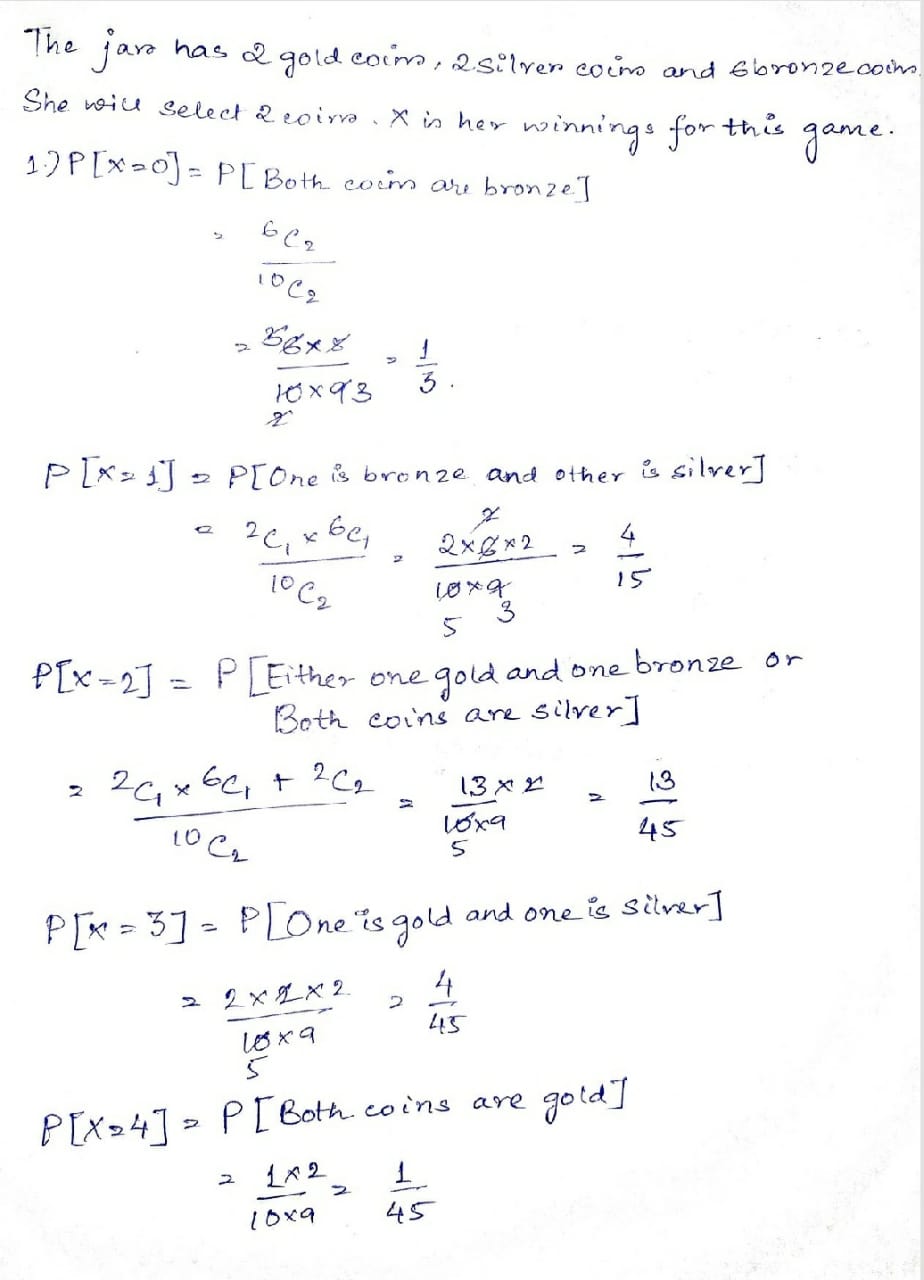 The jar has 2 gold coins, 2 silver coins and 6 bronze coins.
She will select 2 coins. X is her winnings for this game.
1.) P[X=0] = P[Both coins are bronze]
= 6C2 / 10C2
= 6×5 / 10×9 3 = 1/3.
P[X=1] = P[One is bronze and other is silver]
= 2C1 × 6C1 / 10C2 = 2×6×2 / 10×9 = 4/15
P[X=2] = P[Either one gold and one bronze or
Both coins are silver]
= 2C1 × 6C1 + 2C2 / 10C2 = 13×2 / 10×9 = 13/45
P[X=3] = P[One is gold and one is silver]
= 2×2×2 / 10×9 = 4/45
P[X=4] = P[Both coins are gold]
= 1×2 / 10×9 = 1/45